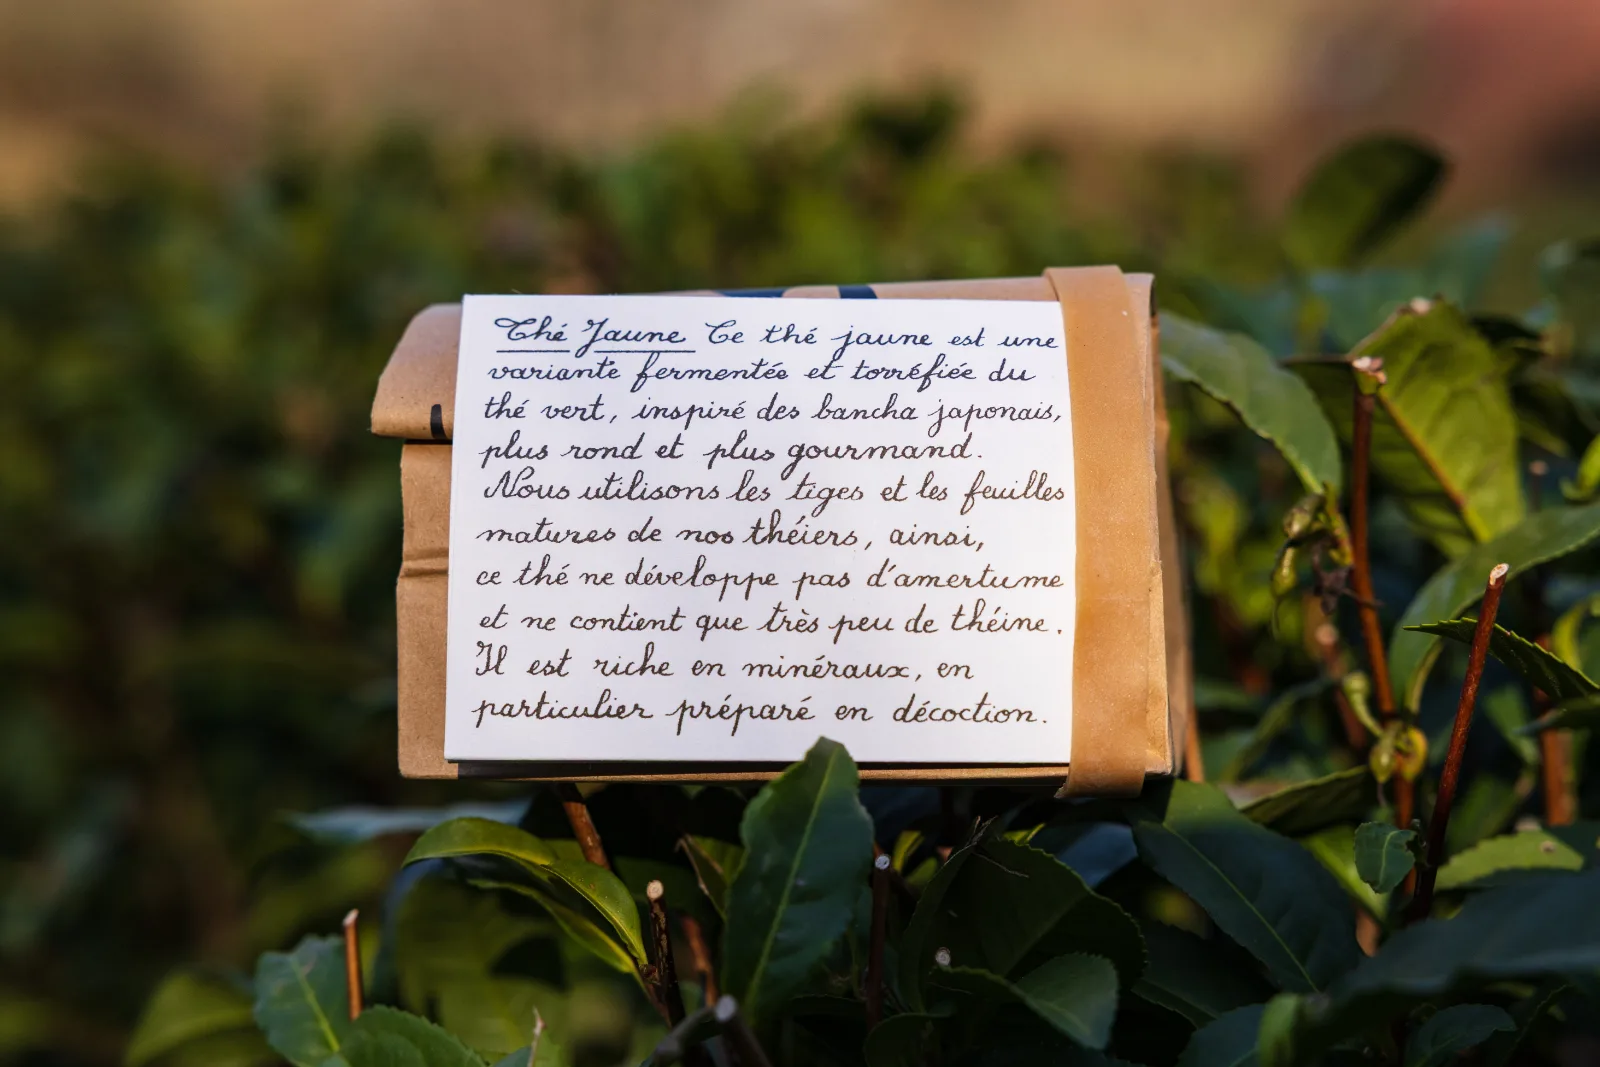 Thé Jaune Ce thé jaune est une
variante fermentée et torréfiée du
thé vert, inspiré des bancha japonais,
plus rond et plus gourmand.
Nous utilisons les tiges et les feuilles
matures de nos théiers, ainsi,
ce thé ne développe pas d'amertume
et ne contient que très peu de théine.
Il est riche en minéraux, en
particulier préparé en décoction.